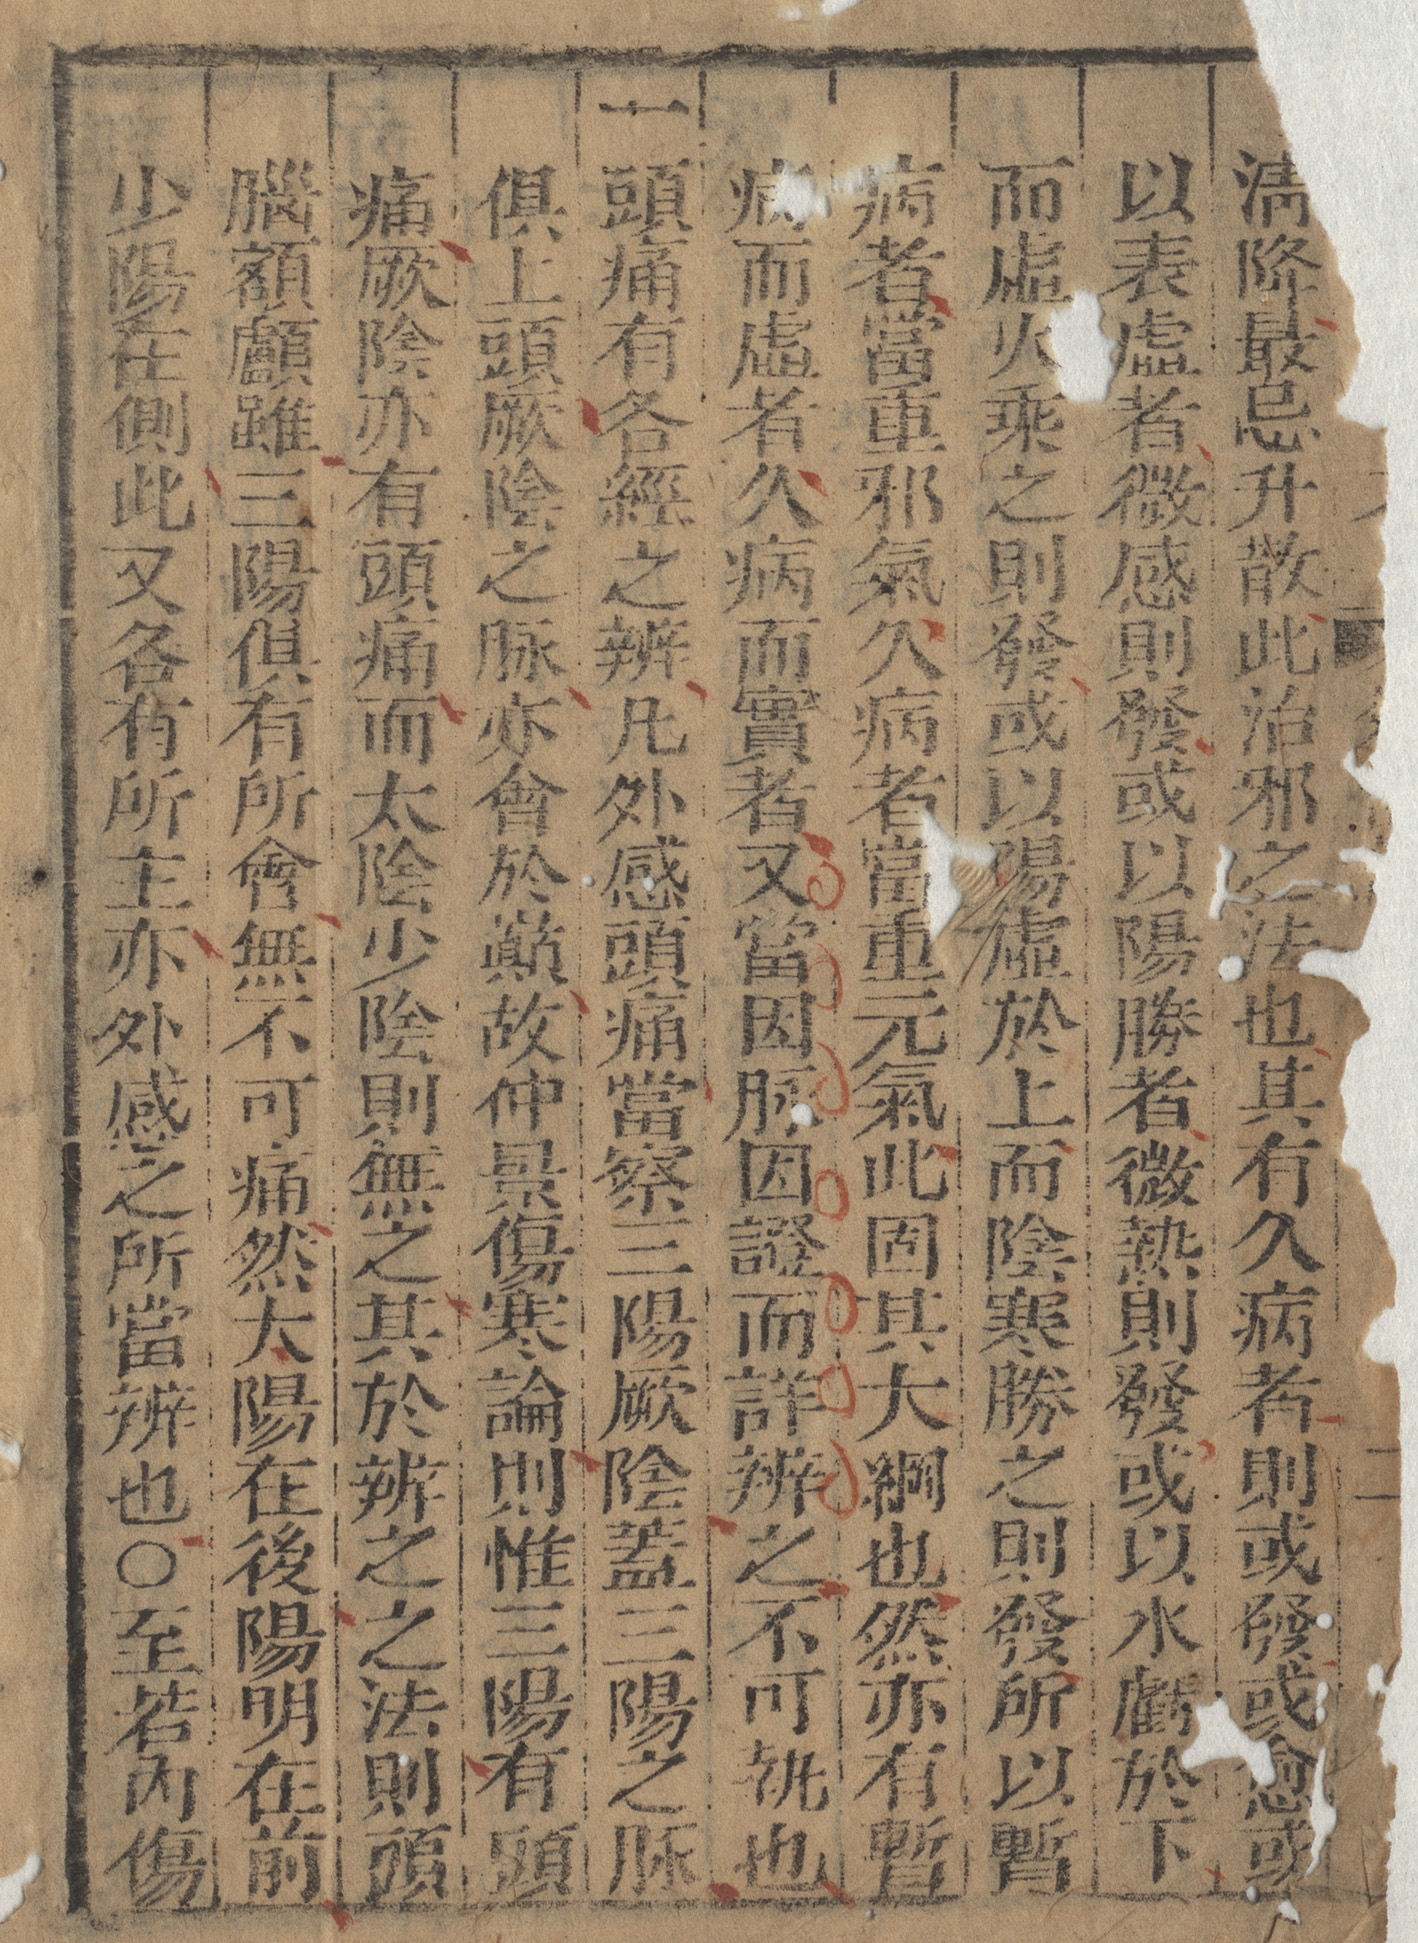 清降最忌升散此治邪之法也其有久病者則或發或愈或
以表虛者微感則發或以陽勝者微熱則發或以水虧於下
而虛火乘之則發或以陽虛於上而陰寒勝之則發所以暫
病者當重邪氣久病者當重元氣此固其大綱也然亦有暫
病而虛者久病而實者又當因脉因證而詳辨之不可執也
一頭痛有各經之辨凡外感頭痛當察三陽厥陰蓋三陽之脉
俱上頭厥陰之脉亦會於巔故仲景傷寒論則惟三陽有頭
痛厥陰亦有頭痛而太陰少陰則無之其於辨之之法則頭
腦額顱雖三陽俱有所會無不可痛然太陽在後陽明在前
少陽在側此又各有所主亦外感之所當辨也○至若內傷